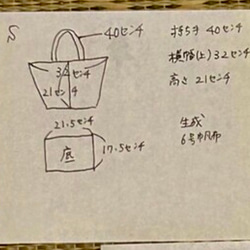 S
40センチ
32センチ
21センチ
21.5センチ
底
17.5センチ
持ち手 40センチ
横幅(上) 32センチ
高さ 21センチ
生成
6号帆布